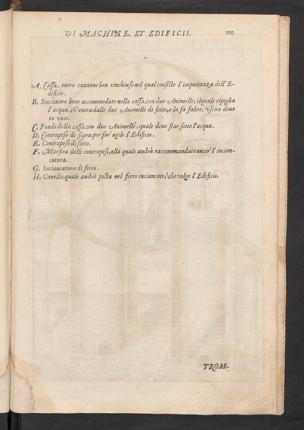 DI MACHINE, ET EDIFICII.
A, Cassa, overo cannone ben cinchiuso nel qual consiste l'importanza dell'E-
dificio.
B. Succiatore bene accommodato nella cassa, con due Animelle, il quale ripiglia
l'acqua, ch'entra dalle due Animelle di sotto, e la fa salire, e fuire dove
tu vuoi.
C. Fondo della cassa con due Animelle, quale deve star sotto l'acqua.
D. Contrapeso di sopra, per far agile l'Edificio.
E. Contrapeso di sotto.
F. Maestra delli contrapesi, alla quale andrà raccommandata anco l'incian-
catura.
G. Inciancatura di ferro.
H. Canella, quale andrà posta nel ferro inciancato, che volge l'Edificio.
TROM-